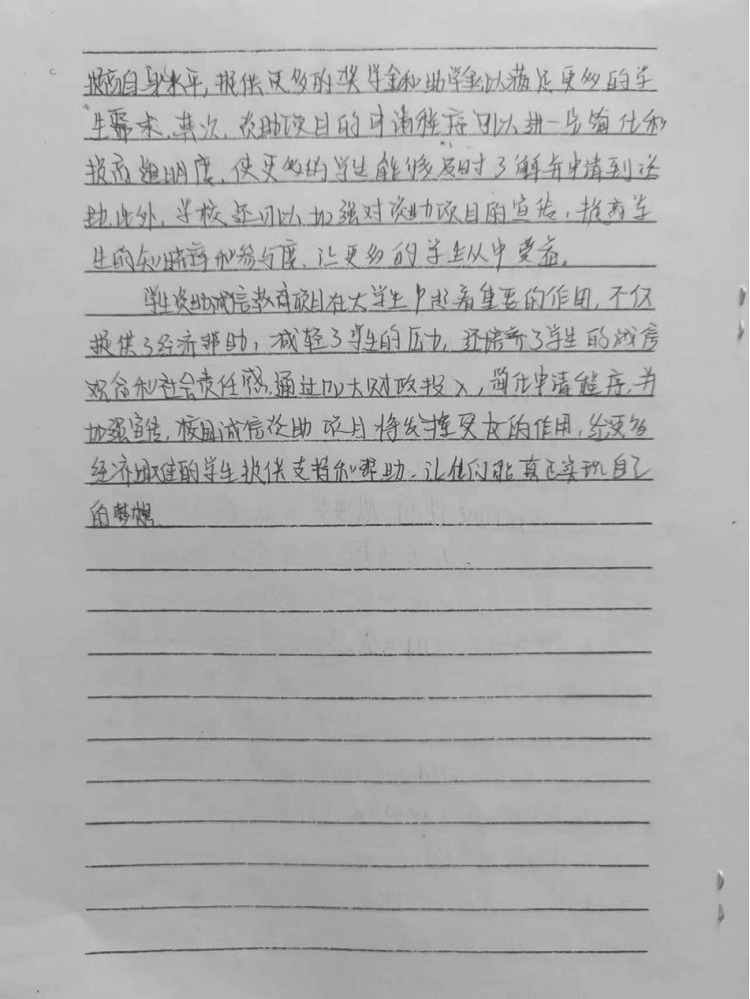 提高自身水平,提供更多的奖学金和助学金以满足更多的学
生需求。其次,资助项目的申请程序可以进一步简化和
提高透明度,使更多的学生能够及时了解并申请到资
助。此外,学校还可以加强对资助项目的宣传,提高学
生的知晓率和参与度,让更多的学生从中受益。
学生资助诚信教育项目在大学生中起着重要的作用,不仅
提供了经济帮助,减轻了学生的压力,还培养了学生的诚信
观念和社会责任感,通过加大财政投入,简化申请程序,并
加强宣传,校园诚信资助项目将发挥更大的作用,给更多
经济困难的学生提供支持和帮助。让他们能真正实现自己
的梦想。